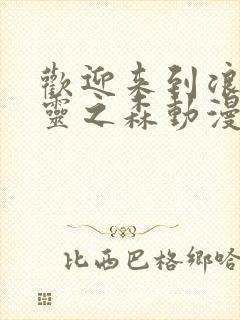 歡迎来到浪
靈之森動漫
比西巴格鄉哈